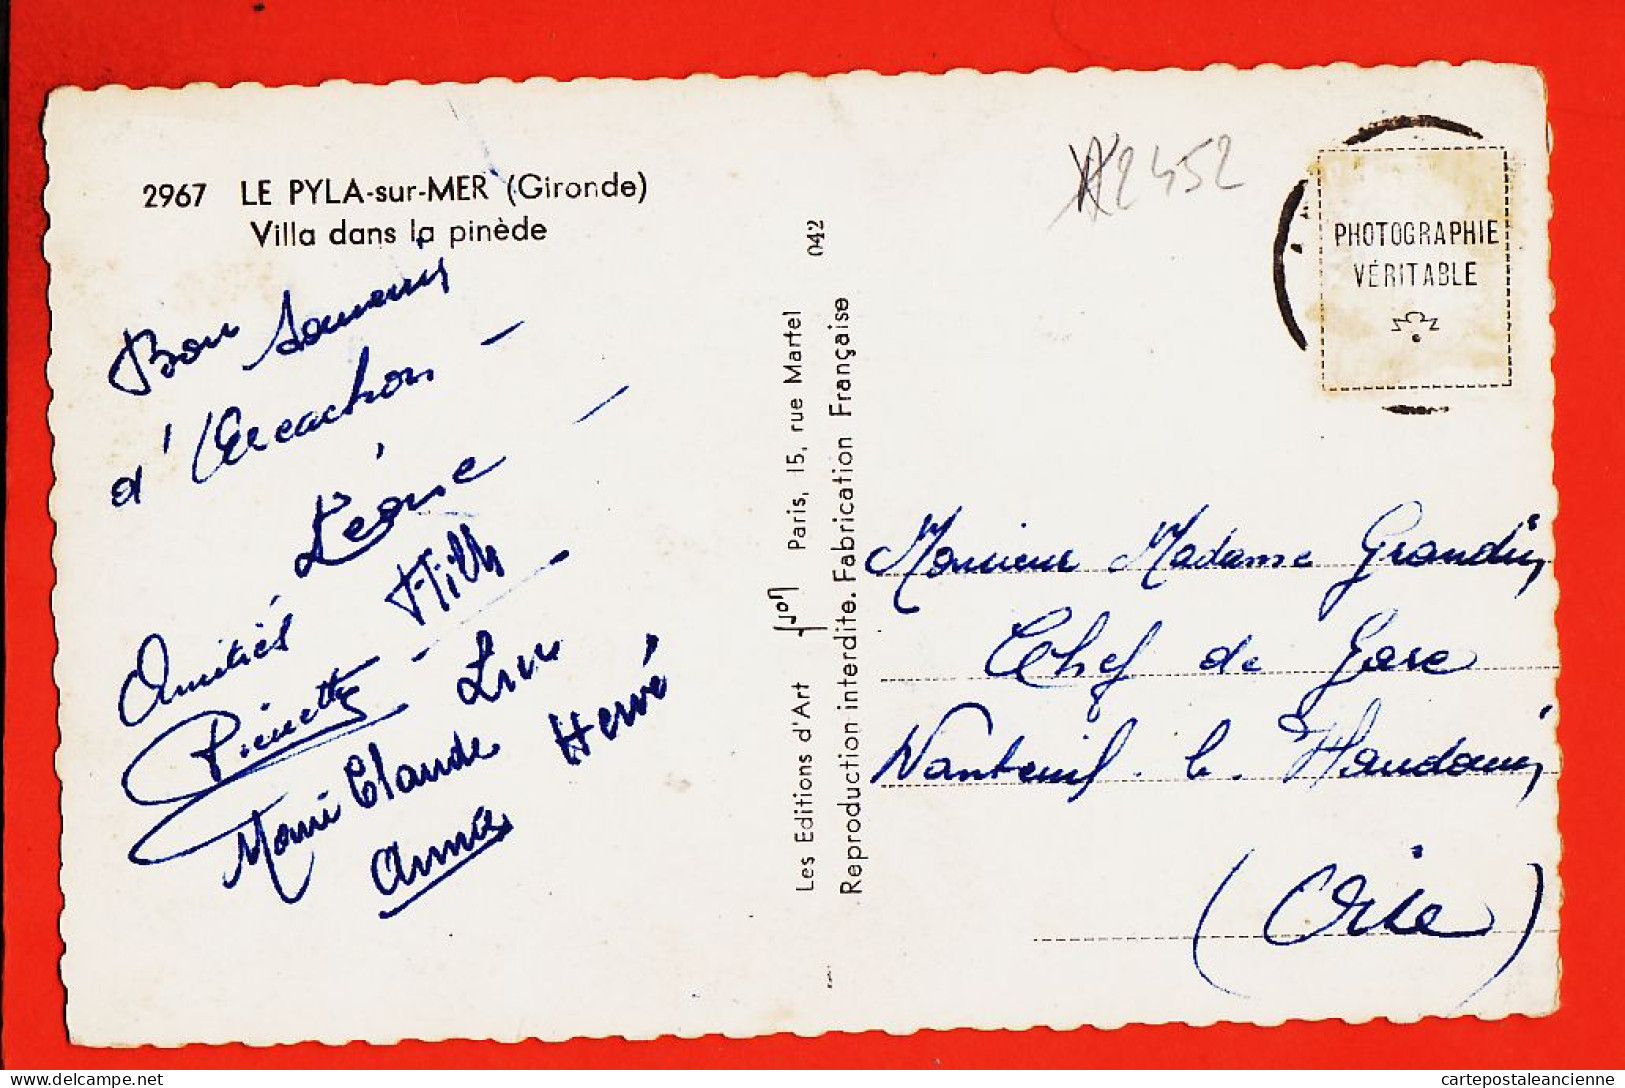 2967 LE PYLA-sur-MER (Gironde)
Villa dans la pinède
Bon souvenir
d'Arcachon -
Léone -
Amitiés
Pierrette - Line
Marie Claude Hervé
Anna
Les Editions d'Art Paris, 15, rue Martel 042
Reproduction interdite. Fabrication Française
2452
PHOTOGRAPHIE
VÉRITABLE
Monsieur Madame Grandin
Chef de Gare
Nanteuil. le. Haudouin
(Oise)
cartepostaleancienne.com